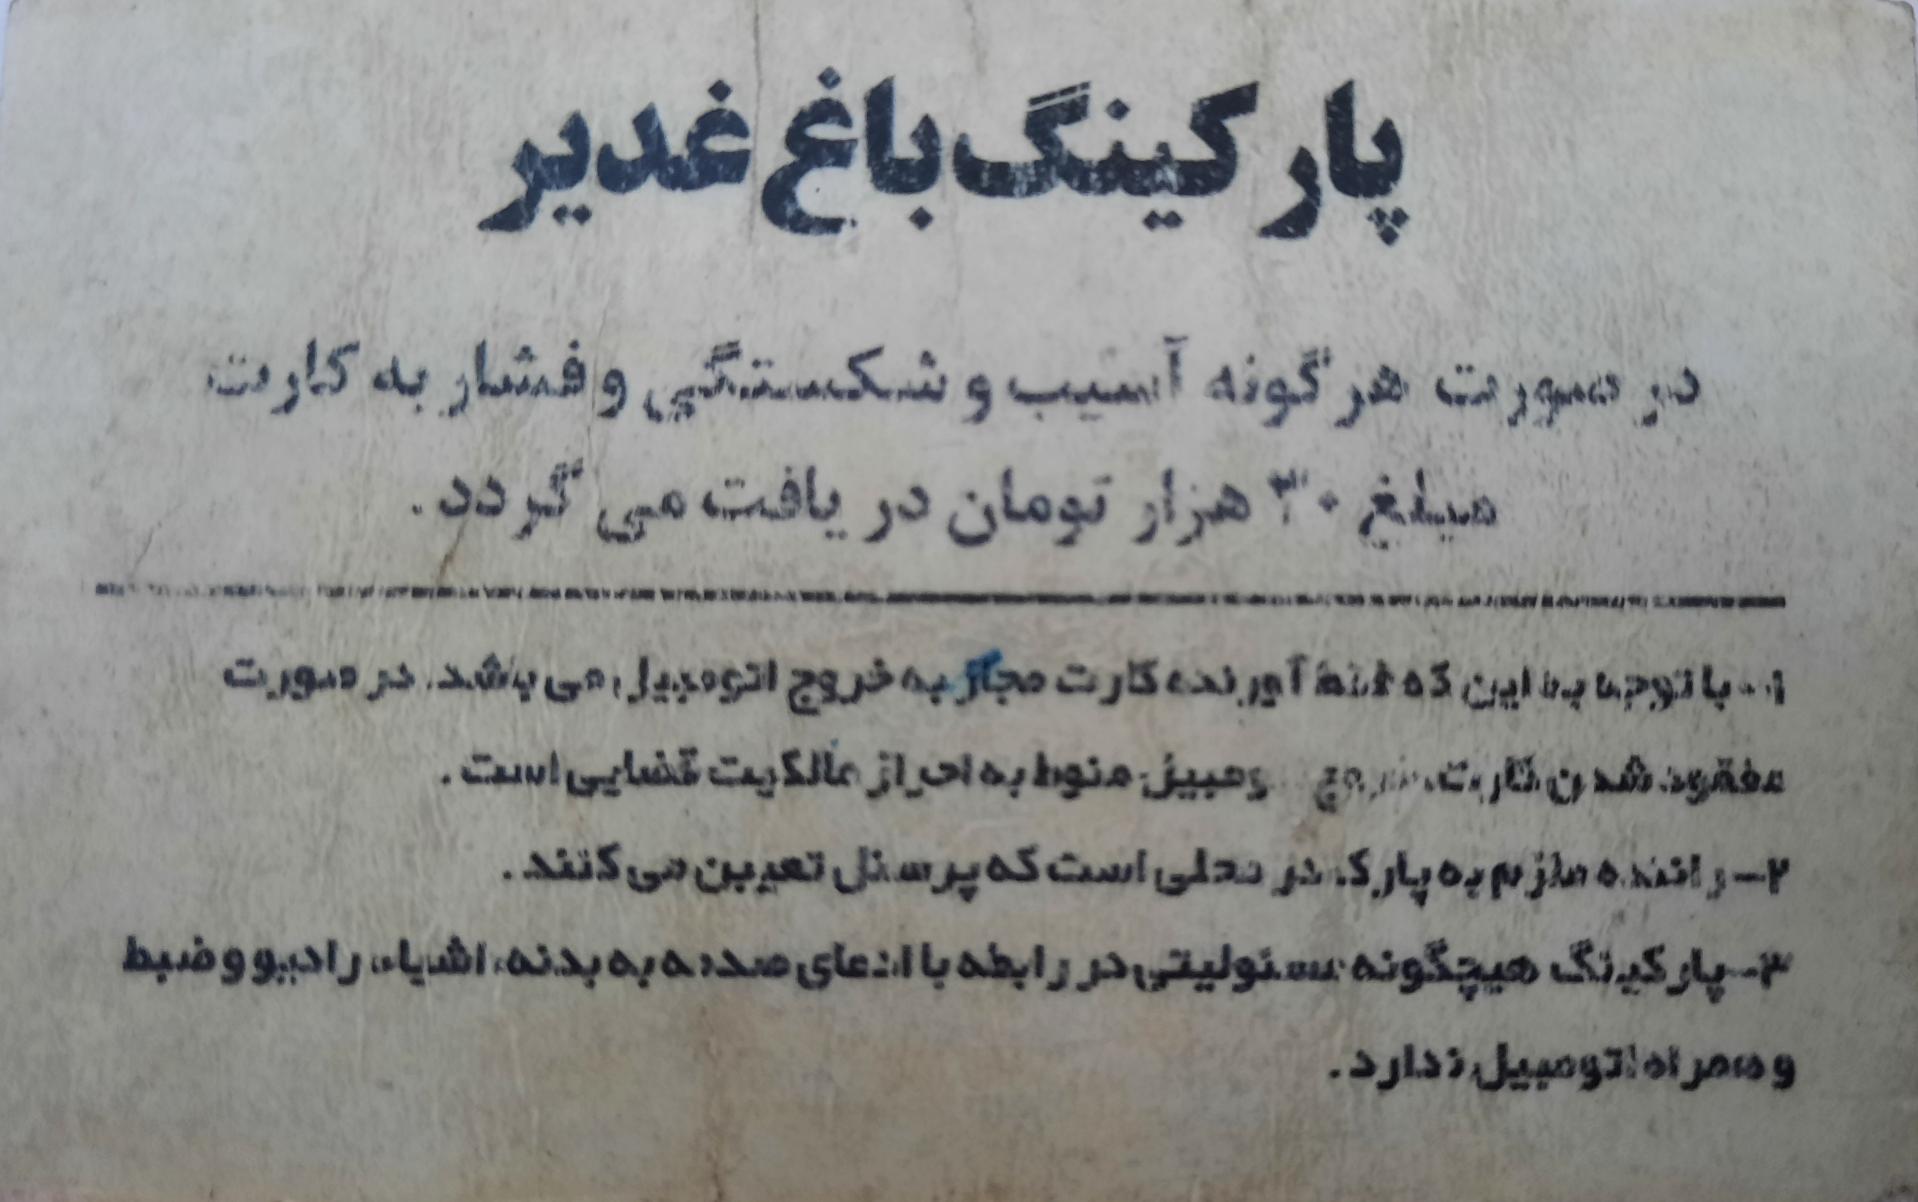 پارکینگ باغ غدیر
در صورت هر گونه آسیب و شکستگی و فشار به کارت
مبلغ ۳۰ هزار تومان دریافت می گردد.
۱- با توجه به این که فقط آورنده کارت مجاز به خروج اتومبیل می باشد. در صورت
مفقود شدن کارت، خروج ومبیل منوط به احراز مالکیت قضایی است.
۲- راننده ملزم به پارک در محلی است که پرسنل تعیین می کنند.
۳- پارکینگ هیچگونه مسئولیتی در رابطه با ادعای صدمه به بدنه، اشیاء، رادیو و ضبط
و همراه اتومبیل ندارد.